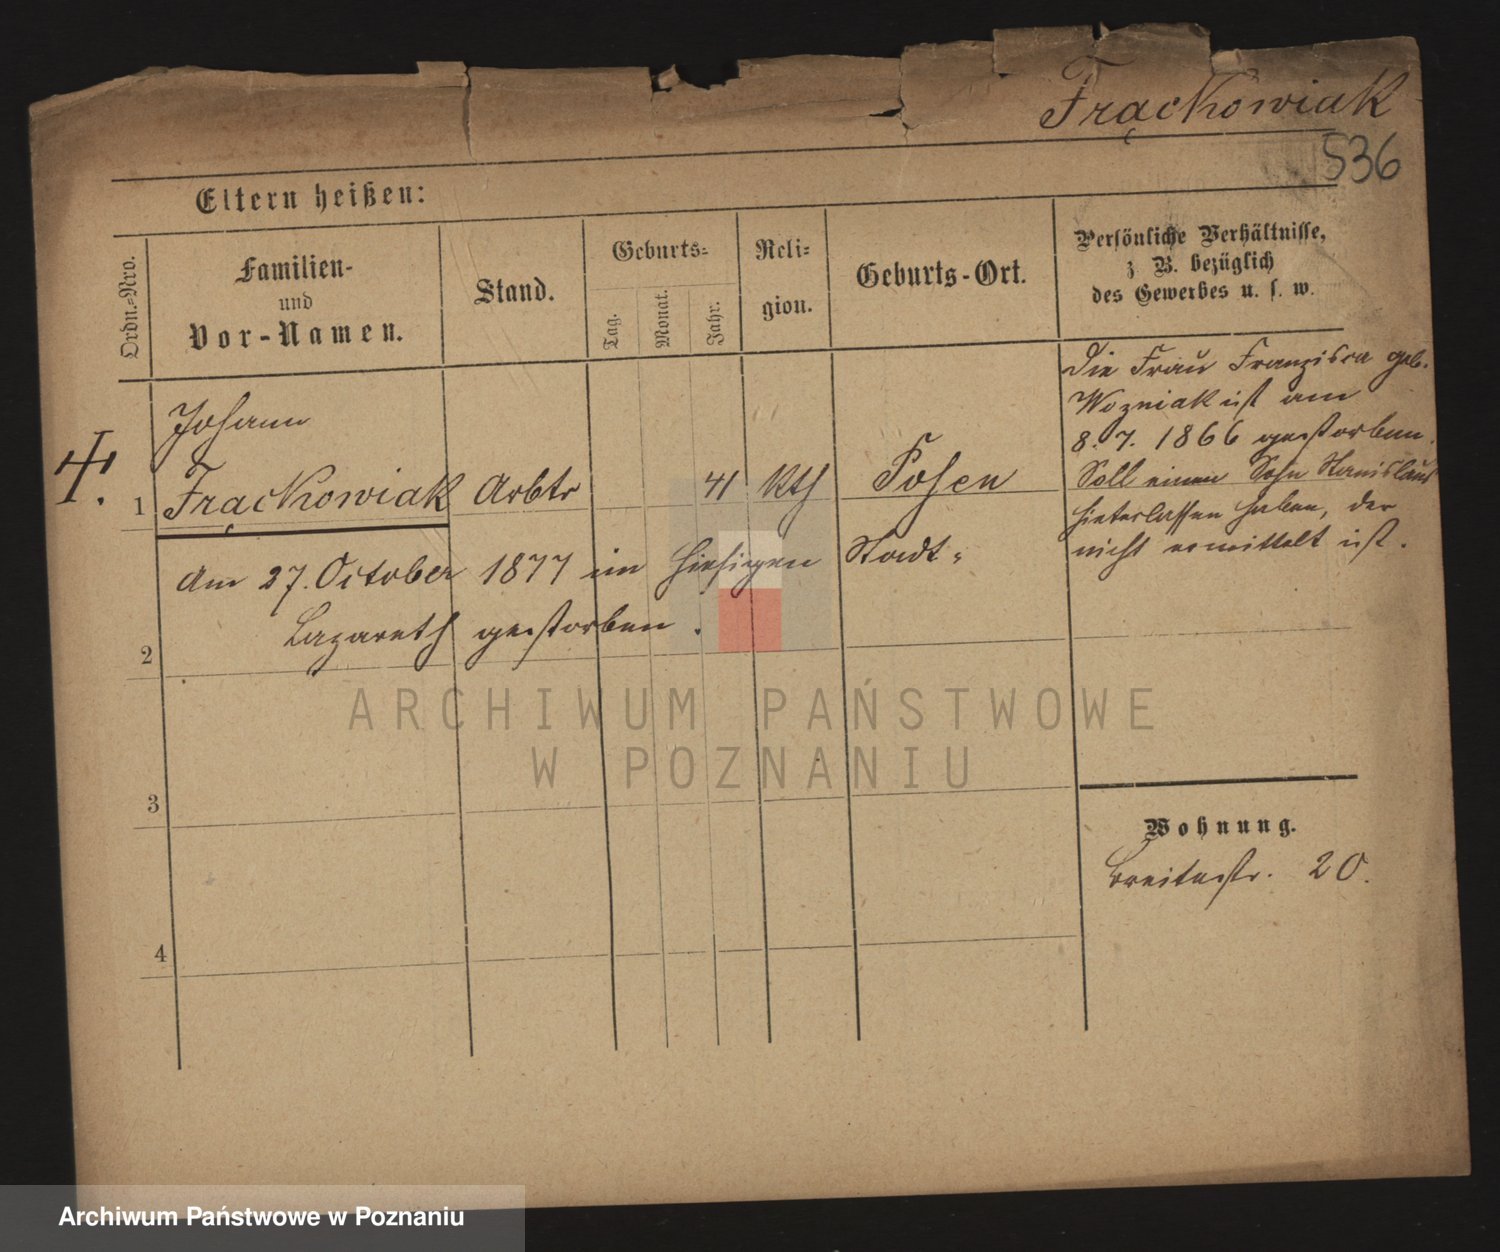 Frąckowiak
536
Eltern heißen:
Ordn.-Nro.
Familien-
und
Vor-Namen.
Stand.
Geburts-
Tag.
Monat.
Jahr.
Reli-
gion.
Geburts-Ort.
Persönliche Verhältnisse,
z. B. bezüglich
des Gewerbes u. s. w.
Johann
1 Frąckowiak Arbtr 41 Kth Posen
Am 27. October 1877 im hiesigen Stadt-
Lazareth gestorben.
2
3
4
Die Frau Franzisca geb.
Wozniak ist am
8. 7. 1866 gestorben.
Soll einen Sohn Stanislaus
hinterlassen haben, der
nicht ermittelt ist.
Wohnung.
Breitestr. 20.
ARCHIWUM PAŃSTWOWE
W POZNANIU
Archiwum Państwowe w Poznaniu